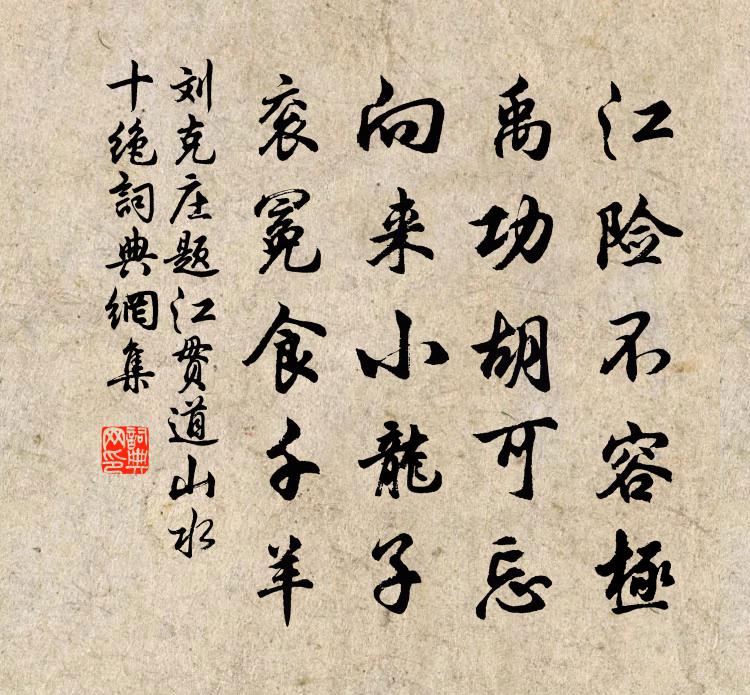 江险不容極
禹功胡可忘
向来小龍子
衮冕食千羊
刘克庄题江贯道山水
十绝詞典網集
詞典网印